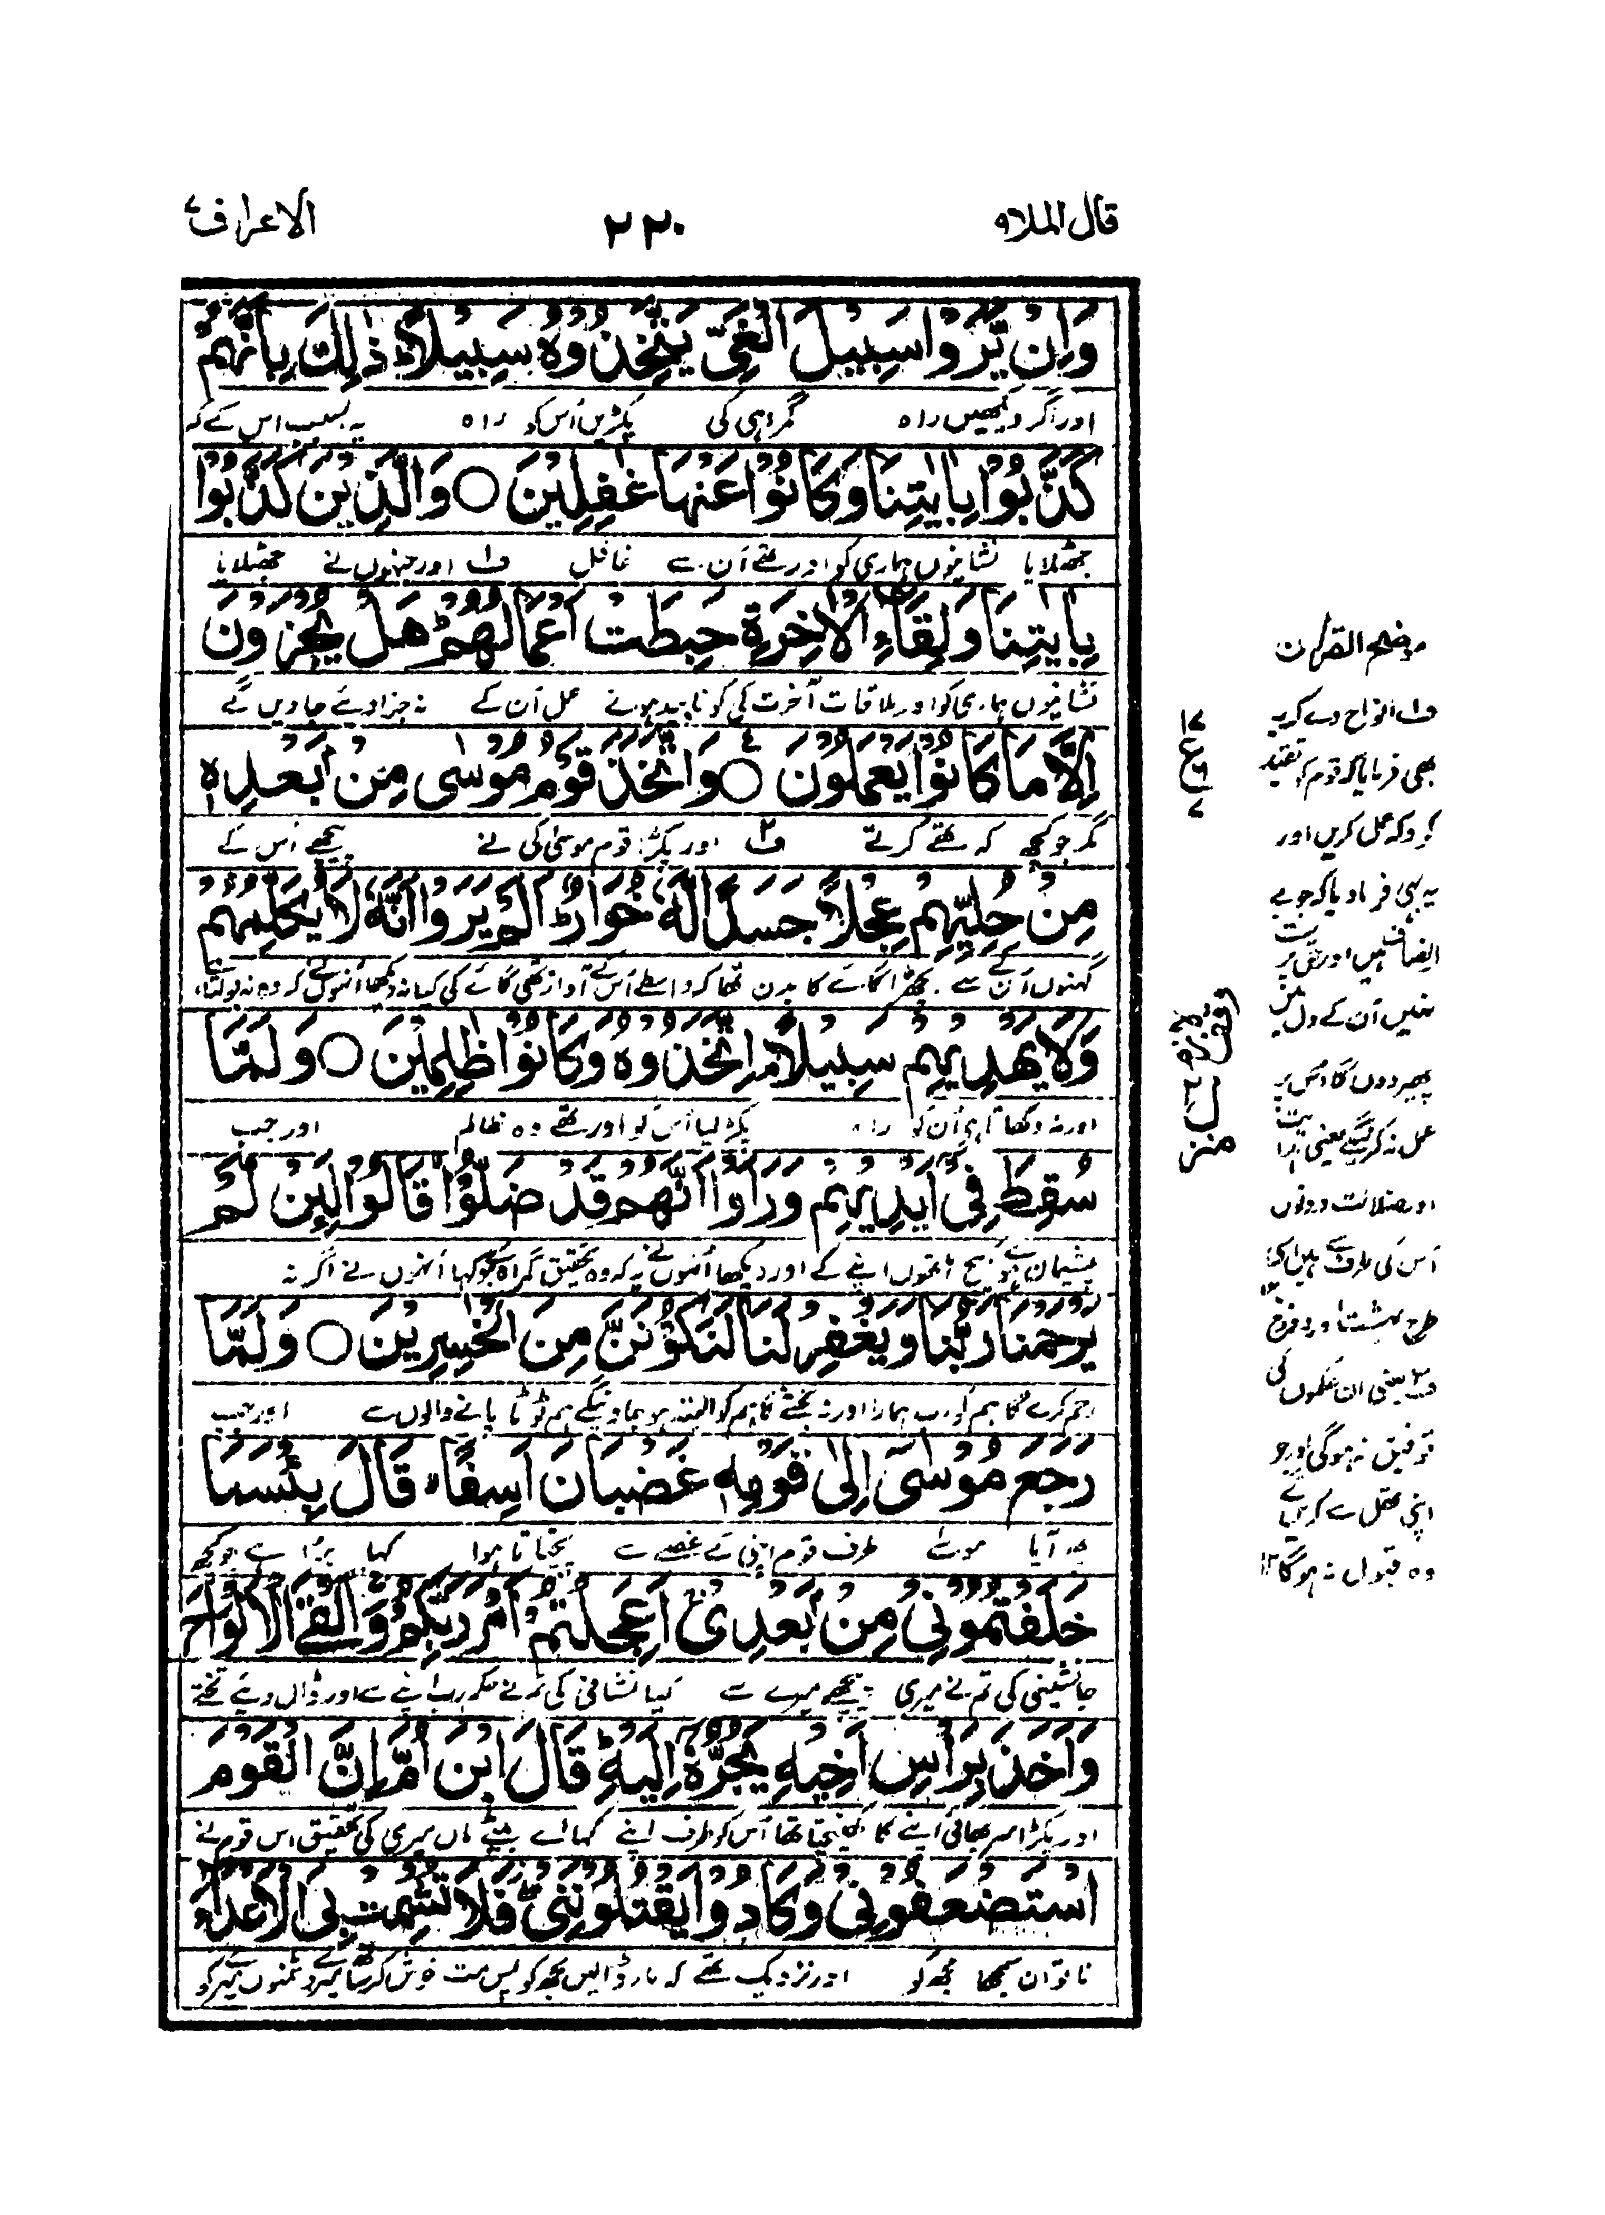 قال الملا۹
۲۲۰
الاعراف۷
وَاِنْ يَّرَوْا سَبِيْلَ الْغَيِّ يَتَّخِذُوْهُ سَبِيْلًا ؕ ذٰلِكَ بِاَنَّهُمْ
اور اگر دیکھیں راہ گمراہی کی پکڑیں اُس کو راہ یہ بسبب اس کے کہ
كَذَّبُوْا بِاٰيٰتِنَا وَكَانُوْا عَنْهَا غٰفِلِيْنَ ○ وَالَّذِيْنَ كَذَّبُوْا
جھٹلایا نشانیوں ہماری کو اور تھے اُن سے غافل ف۱ اور جنہوں نے جھٹلایا
بِاٰيٰتِنَا وَلِقَآءِ الْاٰخِرَةِ حَبِطَتْ اَعْمَالُهُمْ ؕ هَلْ يُجْزَوْنَ
نشانیوں ہماری کو اور ملاقات آخرت کی کو ناپید ہوئے عمل اُن کے نہ جزا دیئے جاویں گے
اِلَّا مَا كَانُوْا يَعْمَلُوْنَ ○ وَاتَّخَذَ قَوْمُ مُوْسٰى مِنْۢ بَعْدِهٖ
مگر جو کچھ کہ تھے کرتے ف۲ اور پکڑا قوم موسیٰ کی نے پیچھے اُس کے
مِنْ حُلِيِّهِمْ عِجْلًا جَسَدًا لَّهٗ خُوَارٌ ؕ اَلَمْ يَرَوْا اَنَّهٗ لَا يُكَلِّمُهُمْ
گہنوں اُن کے سے بچھڑا گائے کا بدن تھا کہ واسطے اُس کے آواز تھی گائے کی کیا نہ دیکھا اُنہوں نے کہ وہ نہ بولتا
وَلَا يَهْدِيْهِمْ سَبِيْلًا ۘ اِتَّخَذُوْهُ وَكَانُوْا ظٰلِمِيْنَ ○ وَلَمَّا
اور نہ دکھاتا ہی اُن کو راہ پکڑ لیا اُس کو اور تھے وہ ظالم اور جب
سُقِطَ فِيْٓ اَيْدِيْهِمْ وَرَاَوْا اَنَّهُمْ قَدْ ضَلُّوْا قَالُوْا لَئِنْ لَّمْ
پشیمان ہوئے بیچ ہاتھوں اپنے کے اور دیکھا اُنہوں نے یہ کہ وہ تحقیق گمراہ ہوگئے کہا اُنہوں نے اگر نہ
يَرْحَمْنَا رَبُّنَا وَيَغْفِرْ لَنَا لَنَكُوْنَنَّ مِنَ الْخٰسِرِيْنَ ○ وَلَمَّا
رحم کرے گا ہم کو رب ہمارا اور نہ بخشے گا ہم کو البتہ ہو جاوینگے ہم ٹوٹا پانے والوں سے اور جب
رَجَعَ مُوْسٰٓى اِلٰى قَوْمِهٖ غَضْبَانَ اَسِفًا ۙ قَالَ بِئْسَمَا
پھر آیا موسیٰ طرف قوم اپنی کے غصے سے پچتاتا ہوا کہا برا ہے جو کچھ
خَلَفْتُمُوْنِيْ مِنْۢ بَعْدِيْ ۚ اَعَجِلْتُمْ اَمْرَ رَبِّكُمْ ۚ وَاَلْقَى الْاَلْوَاحَ
جانشینی کی تم نے میری پیچھے میرے سے کیا شتابی کی تم نے حکم رب اپنے سے اور ڈال دیئے تختے
وَاَخَذَ بِرَاْسِ اَخِيْهِ يَجُرُّهٗٓ اِلَيْهِ ؕ قَالَ ابْنَ اُمَّ اِنَّ الْقَوْمَ
اور پکڑا سر بھائی اپنے کا کھینچتا تھا اُس کو طرف اپنے کہا اے بیٹے ماں میری کی تحقیق اس قوم نے
اسْتَضْعَفُوْنِيْ وَكَادُوْا يَقْتُلُوْنَنِيْ ۖ فَلَا تُشْمِتْ بِيَ الْاَعْدَآءَ
ناتوان سمجھا مجھ کو اور نزدیک تھے کہ مار ڈالیں مجھ کو پس مت خوش کر ساتھ میرے دشمنوں میرے کو
موضح القرآن
ف۱ الواح دے کر یہ
بھی فرمایا کہ قوم کو تقید
کرو کہ عمل کریں اور
یہ بھی فرما دیا کہ جو بے
انصاف ہیں اور حق پرست
نہیں اُن کے دل میں
پھیر دوں گا اس پر
عمل نہ کرینگے یعنی ہدایت
اور ضلالت دونوں
اُس کی طرف سے ہیں
طرح بہشت اور دوزخ ۱۲
ف۲ یعنی ان حکموں کی
توفیق نہ ہوگی اور جو
اپنی عقل سے کریں گے
وہ قبول نہ ہوگا ۱۲
ع
وقف لازم
منزل ۲